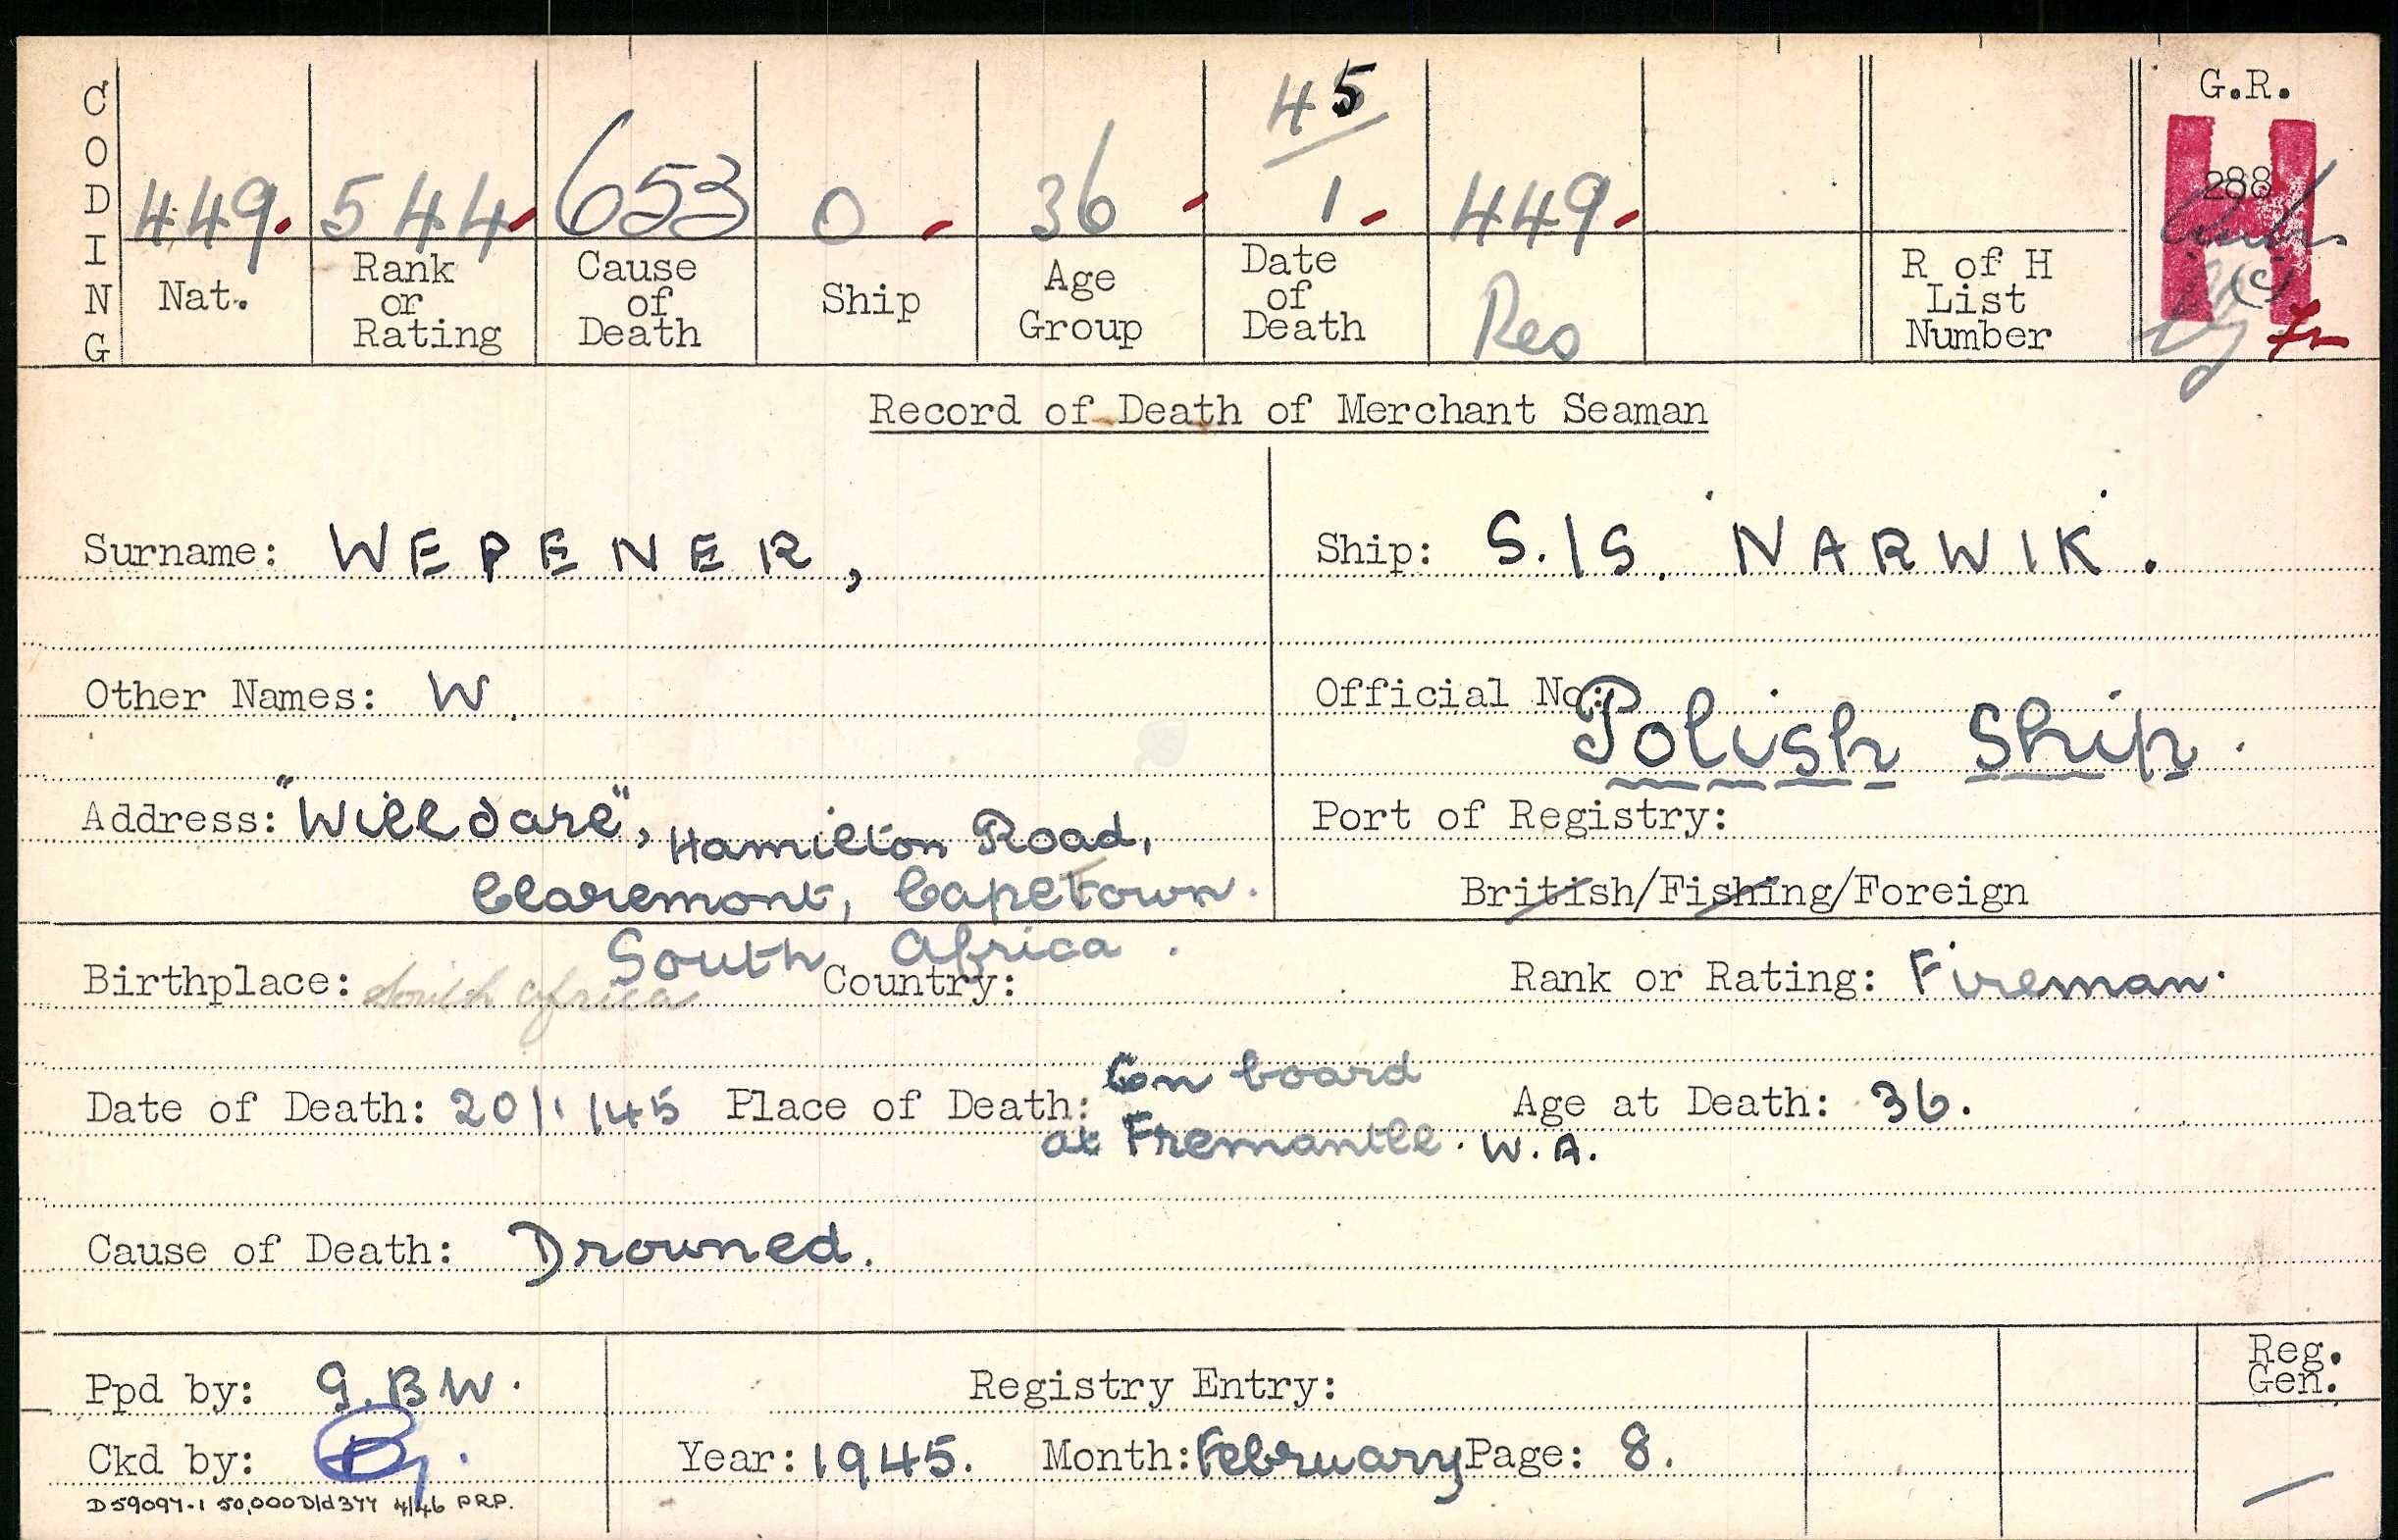 CODING
45
449. 544 653 0 36 1 449
G.R.
H
288
Nat. Rank or Rating Cause of Death Ship Age Group Date of Death Res R of H List Number
Record of Death of Merchant Seaman
Surname: WEPENER, Ship: S./S. "NARWIK".
Other Names: W. Official No: Polish Ship.
Address: "Willdare", Hamilton Road, Port of Registry:
Claremont, CapeTown. British/Fishing/Foreign
South Africa.
Birthplace: South Africa Country: Rank or Rating: Fireman.
Date of Death: 20/1/45 Place of Death: On board Age at Death: 36.
at Fremantle. W.A.
Cause of Death: Drowned.
Ppd by: G.BW. Registry Entry: Reg. Gen.
Ckd by: Year: 1945. Month: February Page: 8.
D59097-1 50,000 D/d377 4/46 P.R.P.